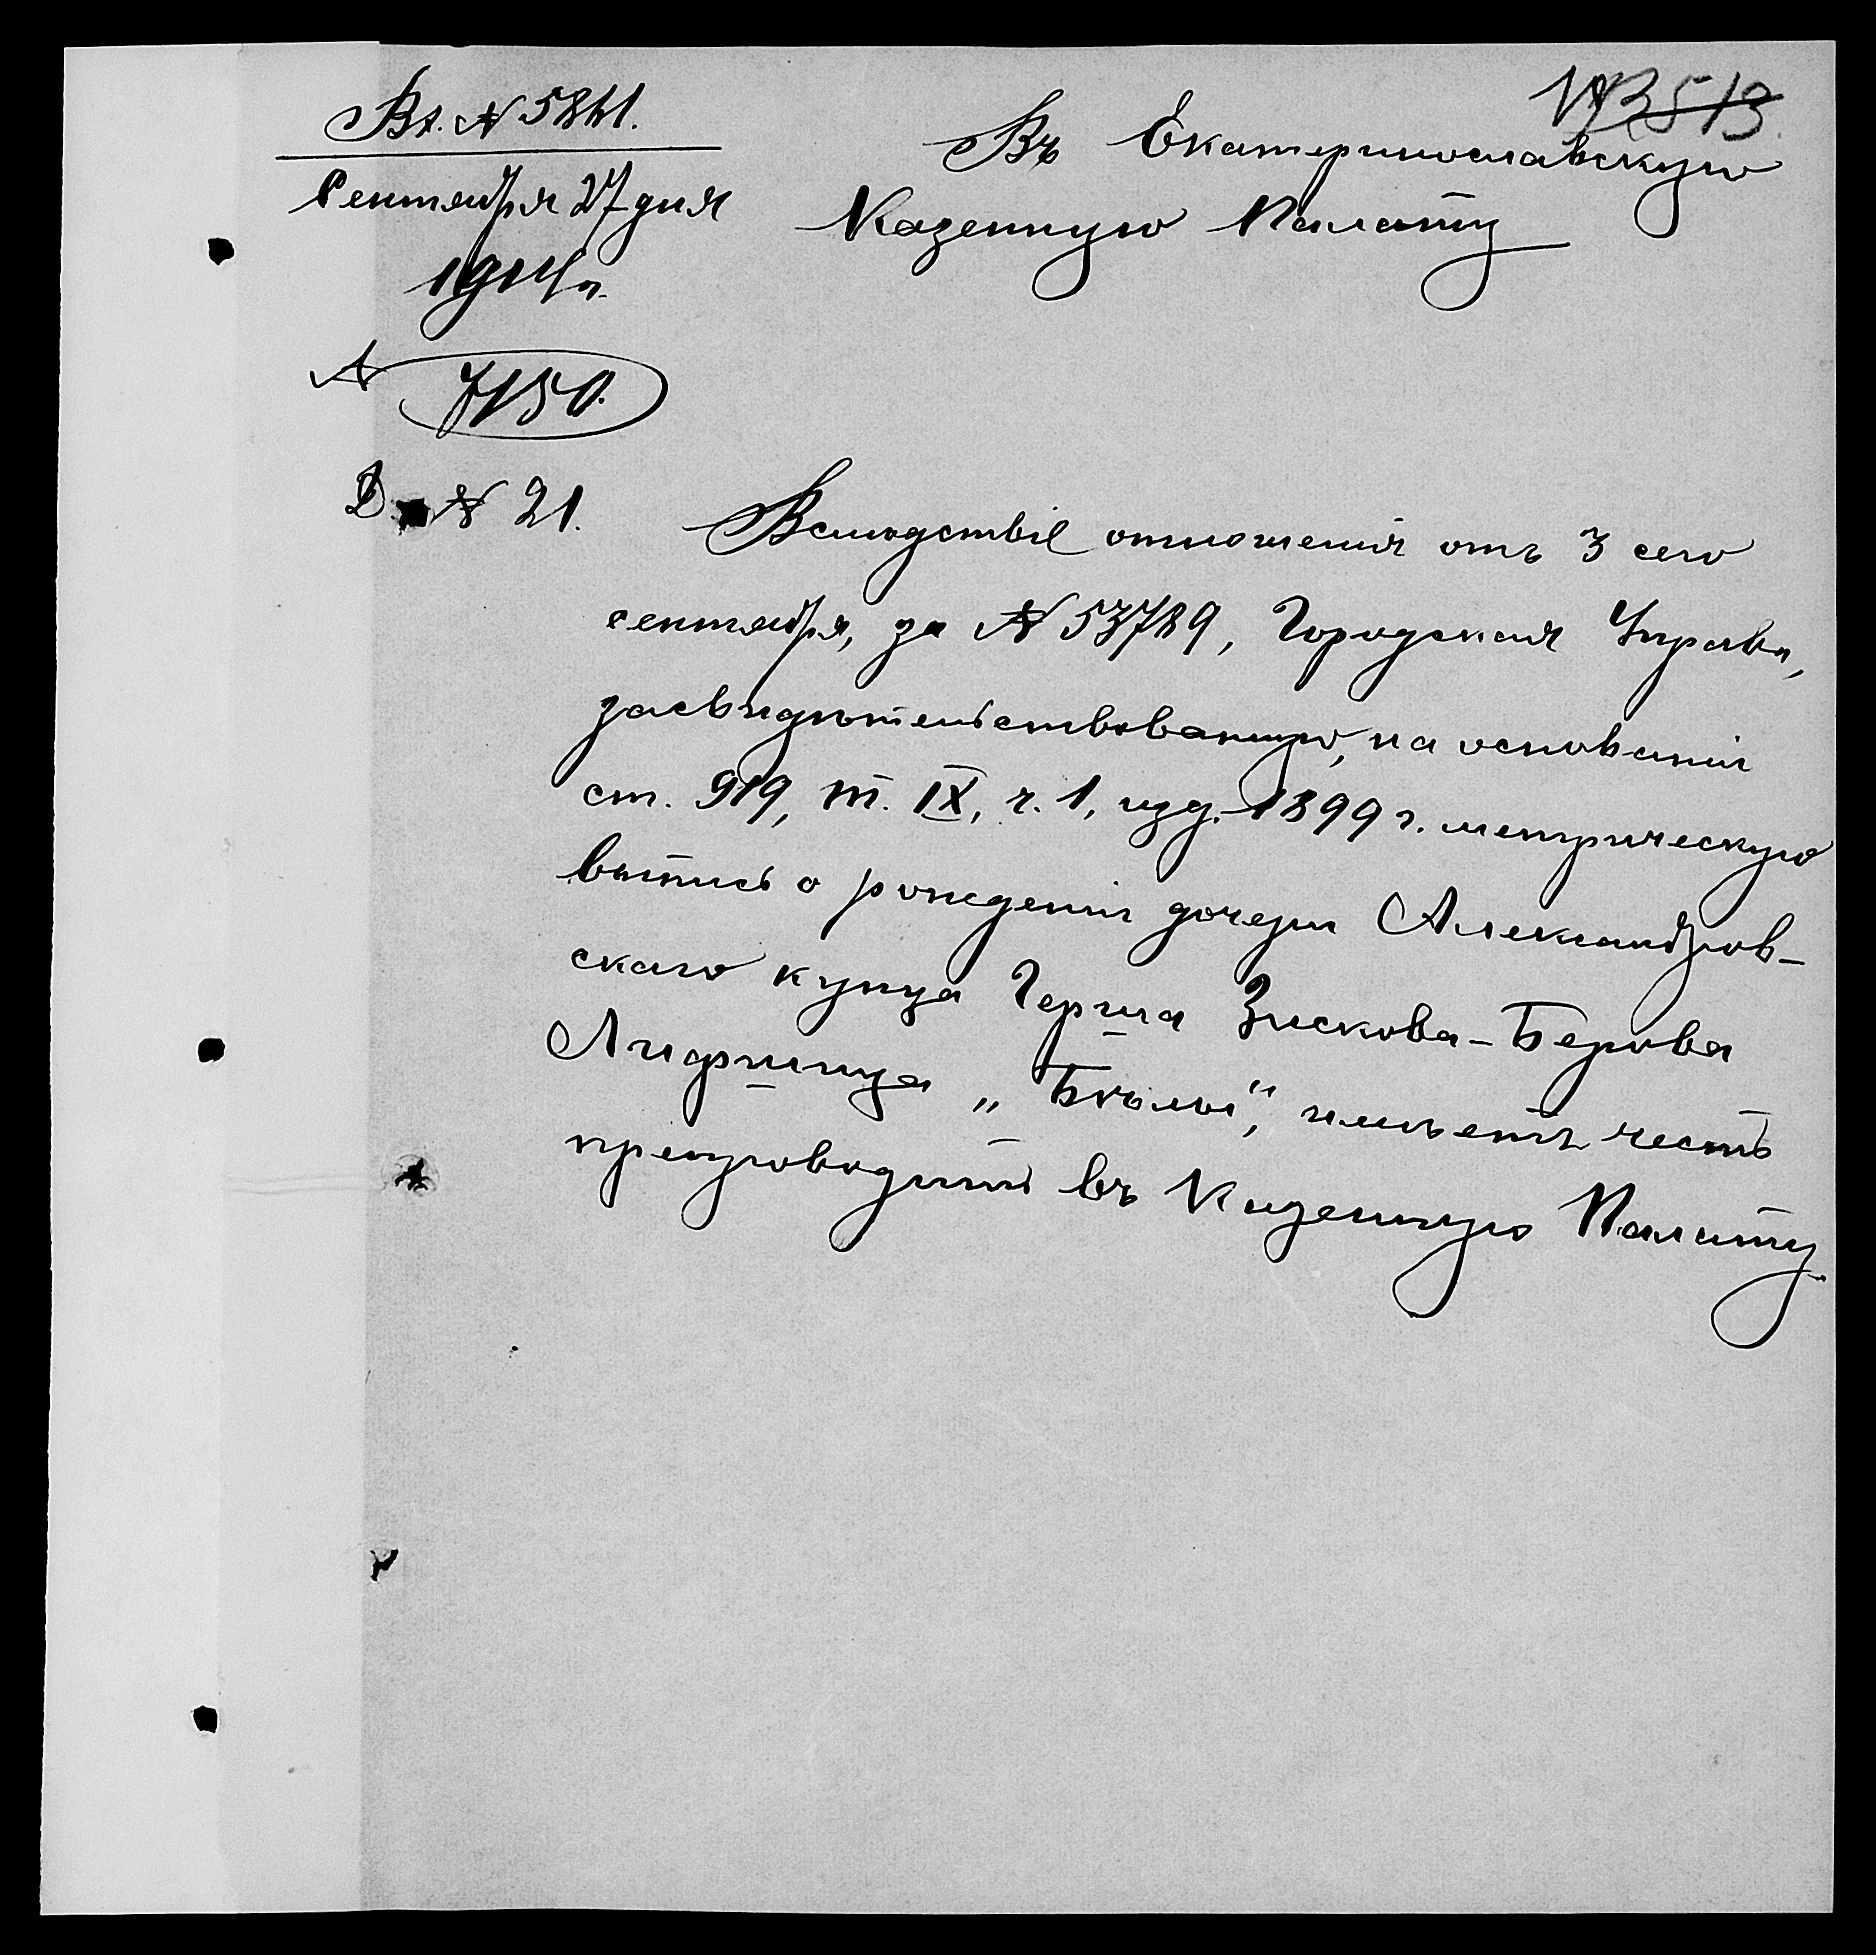 Вх. № 5861.
Сентября 27 дня
1904 г.
№ 7150.
Д. № 21.
Въ Екатеринославскую
Казенную Палату
Вслѣдствіе отношенія отъ 3 сего
сентября, за № 53789, Городская Управа,
засвидѣтельствованную, на основаніи
ст. 919, т. IX, ч. 1, изд. 1899 г. метрическую
выпись о рожденіи дочери Александров-
скаго купца Герша Зискова-Берова
Лифшица „Бѣлы", имѣетъ честь
препроводить въ Казенную Палату